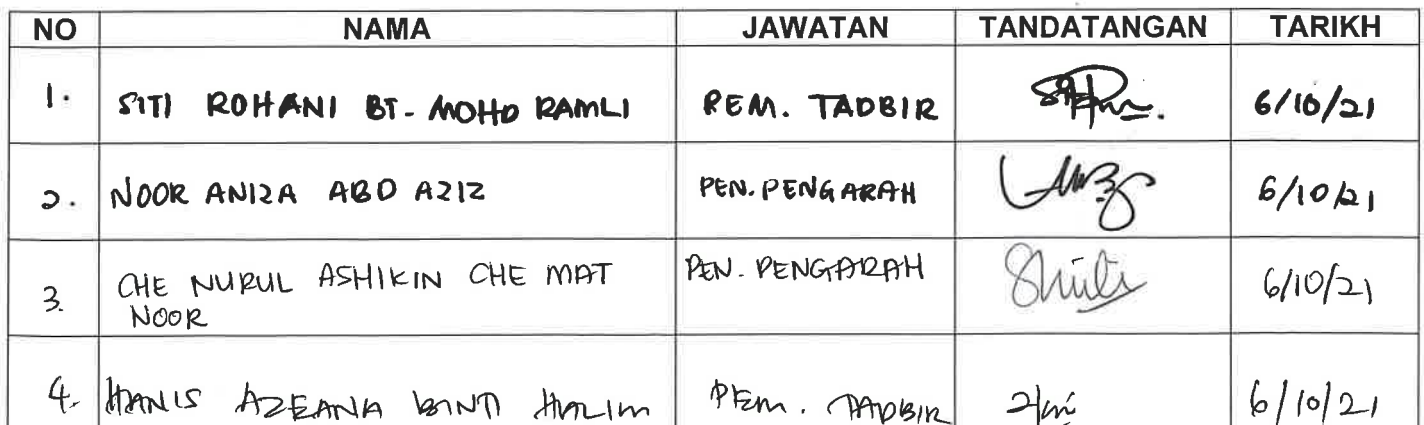 NO NAMA JAWATAN TANDATANGAN TARIKH
1. SITI ROHANI BT. MOHD RAMLI PEM. TADBIR 6/10/21
2. NOOR ANIZA ABD AZIZ PEN. PENGARAH 6/10/21
3. CHE NURUL ASHIKIN CHE MAT NOOR PEN. PENGARAH 6/10/21
4. HANIS AZEANA BINTI HALIM PEM. TADBIR 6/10/21